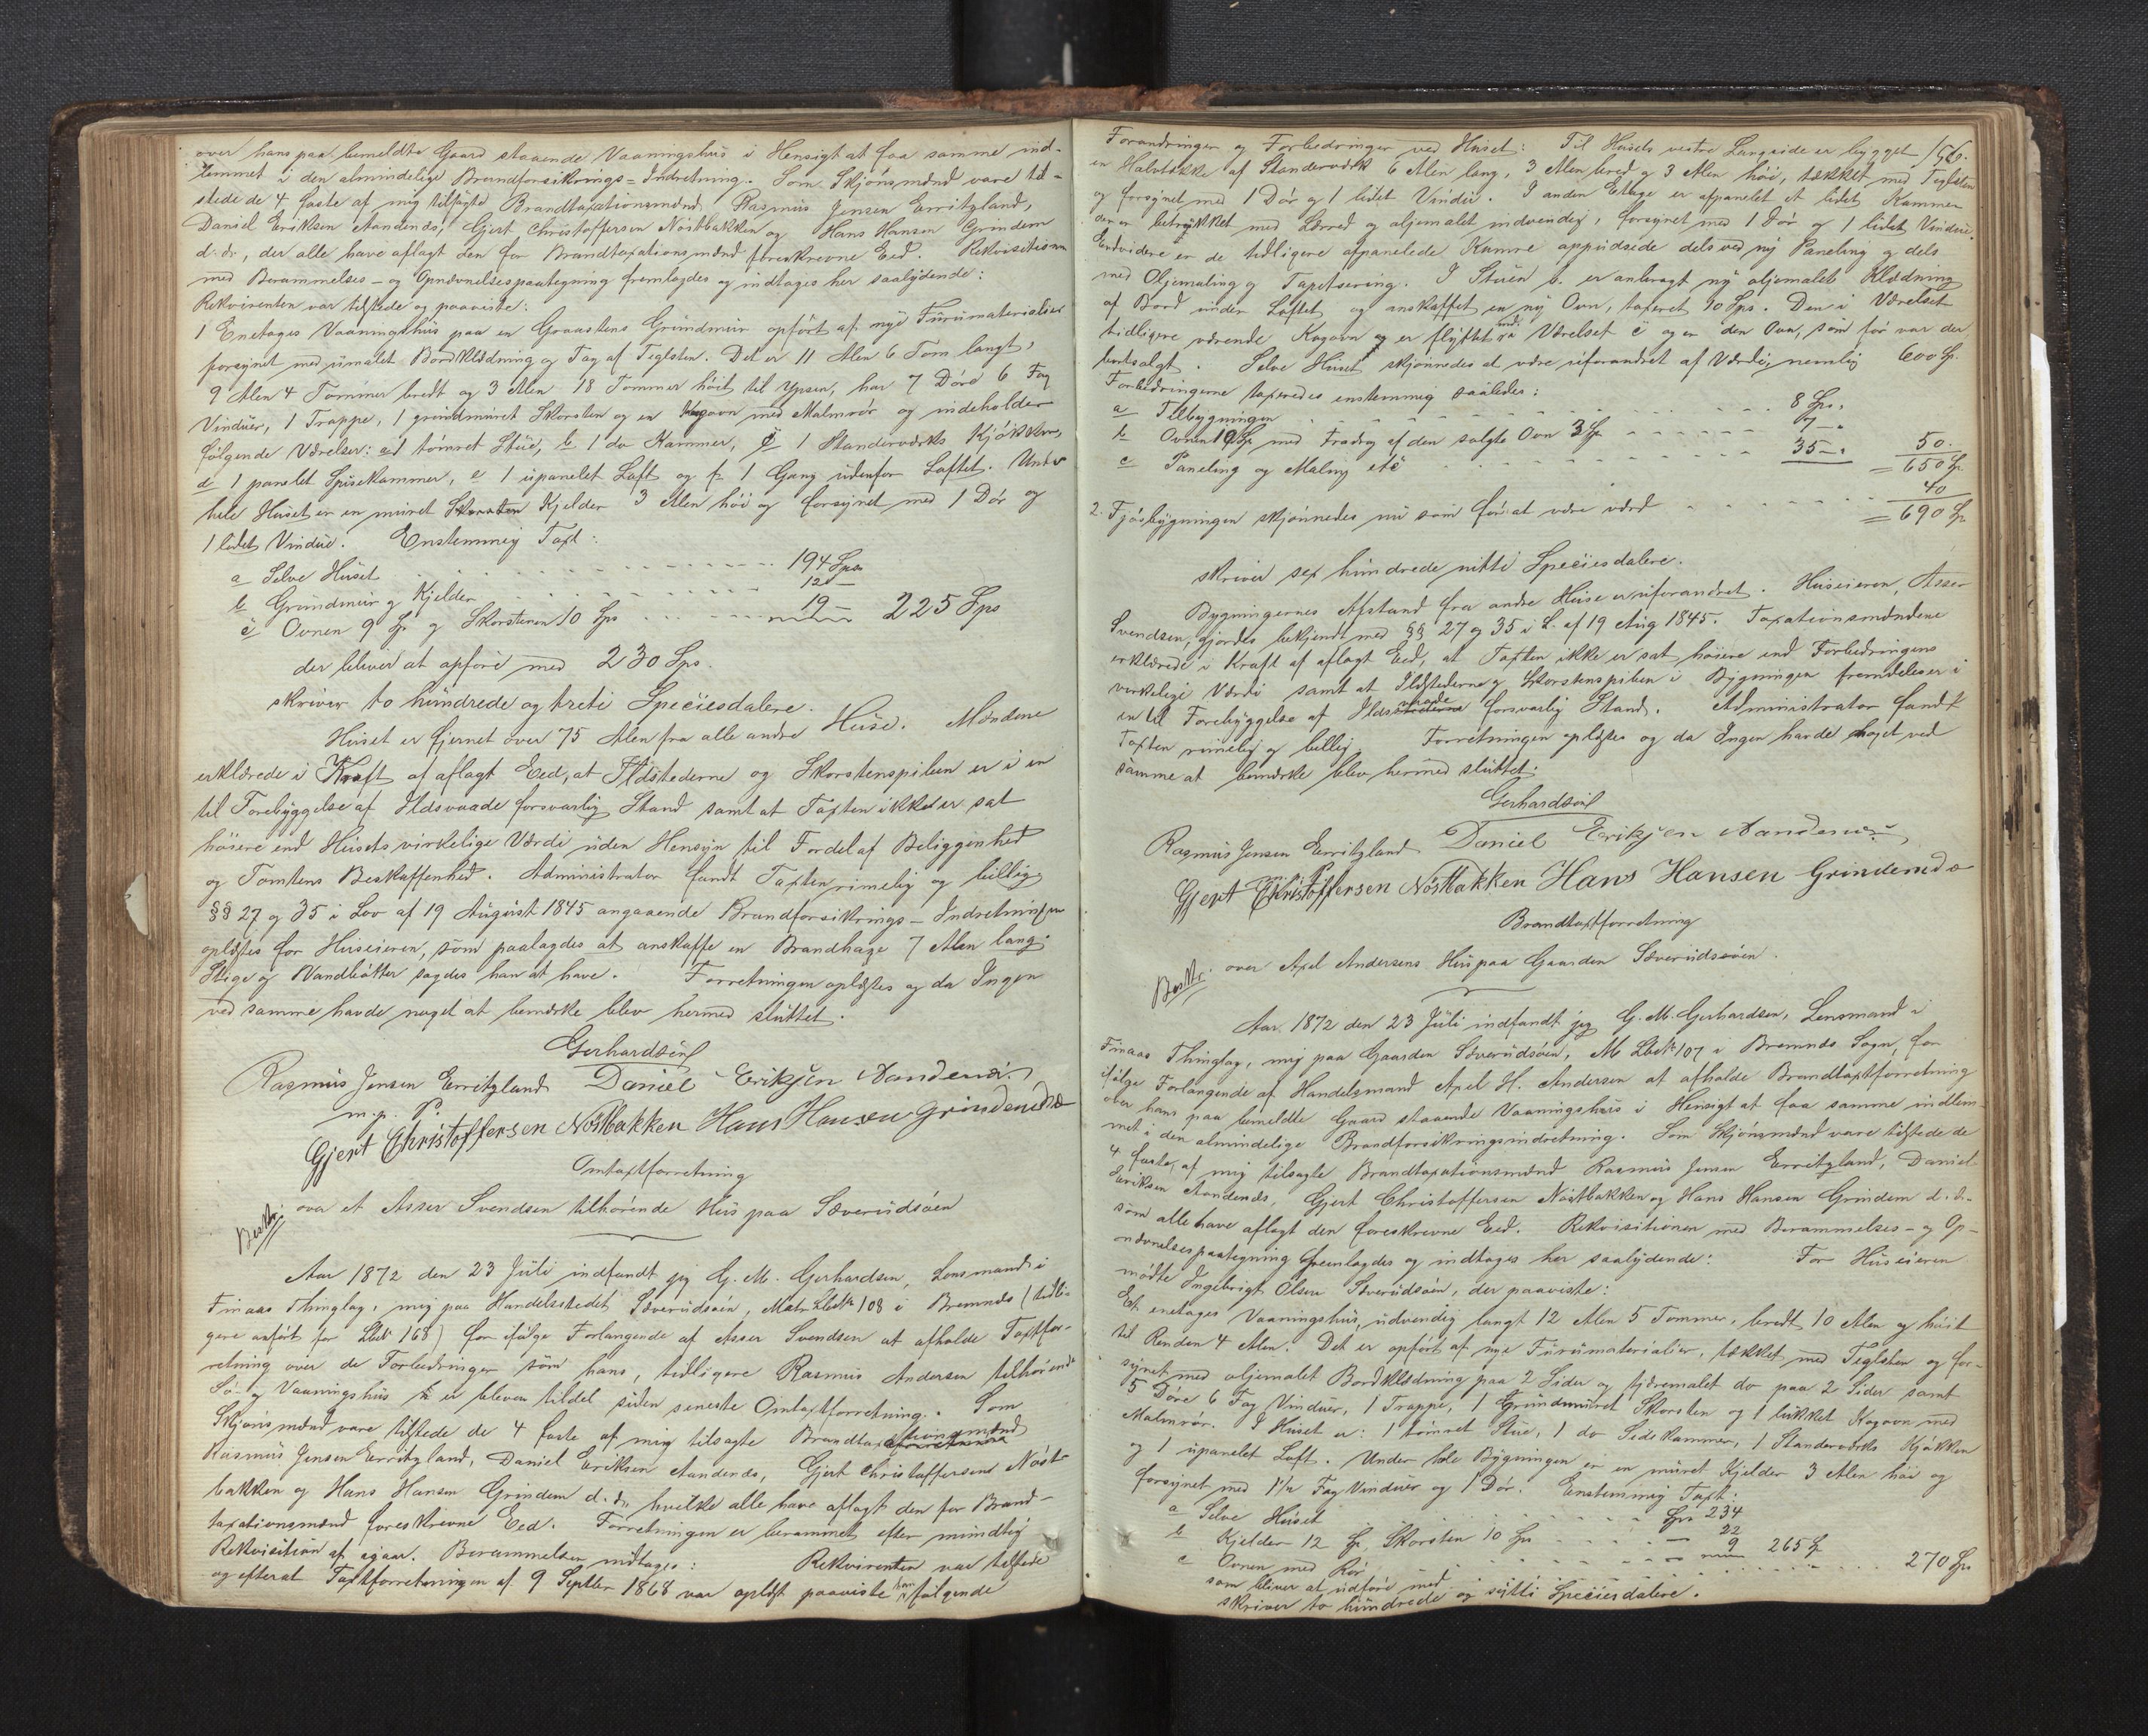 over hans paa bemeldte Gaard staaende Vaaningshus i Hensigt at faa samme ind-
lemmet i den almindelige Brandforsikrings-Indretning. Som Skjønsmænd vare til-
stede de 4 faste af mig tilsagte Brandtaxationsmænd Rasmus Jensen Erritzland,
Daniel Eriksen Aandenæs, Gjert Christoffersen Nøstbakken og Hans Hansen Grindem
d.æ., der alle have aflagt den for Brandtaxationsmænd foreskrevne Eed. Rekvisitionen
med Berammelses- og Opnævnelsespaategning fremlagdes og indtages her saalydende:
Rekvirenten var tilstede og paaviste:
1 Enetages Vaaningshus paa en Graastens Grundmur opført af nye Furumaterialier
forsynet med umalet Bordklædning og Tag af Teglsten. Det er 11 Alen 6 Tom langt,
9 Alen 4 Tommer bredt og 3 Alen 18 Tommer høit til Ypsen, har 7 Døre 6 Fag
Vinduer, 1 Trappe, 1 grundmuret Skorsten og en Kogovn med Malmrør og indeholder
følgende Værelser: a 1 tømret Stue, b 1 do Kammer, c 1 Standerværks Kjøkken,
d 1 panelet Spisekammer, e 1 upanelet Loft og f 1 Gang udenfor Loftet. Under
hele Huset er en muret Kjelder 3 Alen høi og forsynet med 1 Dør og
1 lidet Vindue. Enstemmig Taxt:
a Selve Huset 194 Spd
b Grundmur og Kjelder 12 —
c Ovnen 9 Sp og Skorstenen 10 Sps 19 — 225 Sps
der bliver at opføre med 230 Sps.
skriver to hundrede og treti Speciesdalere.
Huset er fjernet over 75 Alen fra alle andre Huse. Mændene
erklærede i Kraft af aflagt Eed, at Ildstederne og Skorstenspiben er i en
til Forebyggelse af Ildsvaade forsvarlig Stand samt at Taxten ikke er sat
høiere end Husets virkelige Værdi uden Hensyn til Fordel af Beliggenhed
og Tomtens Beskaffenhed. Administrator fandt Taxten rimelig og billig.
§§ 27 og 35 i Lov af 19 August 1845 angaaende Brandforsikrings-Indretningen
oplæstes for Huseieren, som paalagdes at anskaffe en Brandhage 7 Alen lang.
Stige og Vandbøtter sagdes han at have. Forretningen oplæstes og da Ingen
ved samme havde noget at bemærke blev hermed sluttet.
Gerhardsen
Rasmus Jensen Erritzland Daniel Eriksen Aandenæs
m.p. P.
Gjert Christoffersen Nøstbakken Hans Hansen Grindem d æ
Omtaxtforretning
Beskr. over et Asser Svendsen tilhørende Hus paa Sæverudsøen
Aar 1872 den 23 Juli indfandt jeg G. M. Gerhardsen, Lensmand i
Finaas Thinglag, mig paa Handelsstedet Sæverudsøen, Matr Lbn 108 i Bremnæs (tidli-
gere anført for Lbn 168) for ifølge Forlangende af Asser Svendsen at afholde Taxtfor-
retning over de Forbedringer som hans, tidligere Rasmus Andersen tilhørende
Sø- og Vaaningshus er bleven tildel siden seneste Omtaxtforretning. Som
Skjønsmænd vare tilstede de 4 faste af mig tilsagte Brandtaxationsmænd
Rasmus Jensen Erritzland, Daniel Eriksen Aandenæs, Gjert Christoffersen Nøst-
bakken og Hans Hansen Grindem d.æ. hvilke alle have aflagt den for Brand-
taxationsmænd foreskrevne Eed. Forretningen er berammet efter mundtlig
Rekvisition af igaar. Berammelsen indtages: Rekvirenten var tilstede
og efterat Taxtforretningen af 9 Septbr 1868 var oplæst paaviste han følgende
156.
Forandringer og Forbedringer ved Huset: Til Husets vestre Langside er bygget
en Halvtække af Standerværk 6 Alen lang, 3 Alen bred og 3 Alen høi, tækket med Teglsten
og forsynet med 1 Dør og 1 lidet Vindue. I anden Etage er afpanelet et lidet Kammer
den er betrækket med Lærred og oljemalet indvendig, forsynet med 1 Dør og 1 lidet Vindue.
Endvidere er de tidligere afpanelede Kamre oppudsede dels ved ny Paneling og dels
med Oljemaling og Tapetsering. I Stuen b. er anbragt ny oljemalet Klædning
af Bord under Loftet og anskaffet en ny Ovn, taxeret 10 Sps. Den i Værelset
tidligere værende Kogovn er flyttet ind i Værelset c og er den Ovn, som før var der
bortsolgt. Selve Huset skjønnedes at være uforandret af Værdi, nemlig 600 Sp.
Forbedringerne taxeredes enstemmig saaledes:
a Tilbygningen 8 Sps.
b Ovnen 10 Sp med Fradrag af den solgte Ovn 3 Sp 7 -
c Paneling og Maling etc 35 - 50.
= 650 Sp
2. Fjøsbygningen skjønnedes nu som før at være værd 40
= 690 Sp
skriver sex hundrede nitti Speciesdalere.
Bygningernes Afstand fra andre Huse er uforandret. Huseieren, Asser
Svendsen, gjordes bekjendt med §§ 27 og 35 i L. af 19 Aug 1845. Taxationsmændene
erklærede i Kraft af aflagt Eed, at Taxten ikke er sat høiere end Forbedringens
virkelige Værdi samt at Ildstederne og Skorstenspiben i Bygningen fremdeles er i
en til Forebyggelse af Ildsvaade forsvarlig Stand. Administrator fandt
Taxten rimelig og billig. Forretningen oplæstes og da Ingen havde noget ved
samme at bemærke blev hermed sluttet.
Gerhardsen
Rasmus Jensen Erritzland Daniel Eriksen Aandenæs
Gjert Christoffersen Nøstbakken Hans Hansen Grindem d æ
Brandtaxtforretning
Beskr. over Axel Andersens Hus paa Gaarden Sæverudsøen.
Aar 1872 den 23 Juli indfandt jeg G. M. Gerhardsen, Lensmand i
Finaas Thinglag, mig paa Gaarden Sæverudsøen, M Lbn 107 i Bremnæs Sogn, for
ifølge Forlangende af Handelsmand Axel H. Andersen at afholde Brandtaxtforretning
over hans paa bemeldte Gaard staaende Vaaningshus i Hensigt at faa samme indlem-
met i den almindelige Brandforsikringsindretning. Som Skjønsmænd vare tilstede de
4 faste, af mig tilsagte Brandtaxationsmænd Rasmus Jensen Erritzland, Daniel
Eriksen Aandenæs, Gjert Christoffersen Nøstbakken og Hans Hansen Grindem d.æ.
som alle have aflagt den foreskrevne Eed. Rekvisitionen med Berammelses- og Op-
nævnelsespaategning fremlagdes og indtages her saalydende: For Huseieren
mødte Ingebrigt Olsen Sæverudsøen, der paaviste:
Et enetages Vaaningshus, udvendig langt 12 Alen 5 Tommer, bredt 10 Alen og høit
til Renden 4 Alen. Det er opført af nye Furumaterialier, tækket med Teglsten og for-
synet med oljemalet Bordklædning paa 2 Sider og tjæremalet do paa 2 Sider samt
5 Døre 6 Fag Vinduer, 1 Trappe, 1 Grundmuret Skorsten og 1 lukket Kogovn med
Malmrør. I Huset er: 1 tømret Stue, 1 do Sidekammer, 1 Standerværks Kjøkken
og 1 upanelet Loft. Under hele Bygningen er en muret Kjelder 3 Alen høi og
forsynet med 1 1/2 Fag Vinduer og 1 Dør. Enstemmig Taxt:
a Selve Huset Spd 234
b Kjelder 12 Sp, Skorsten 10 Sps — 22
c Ovnen med Rør — 9 265 Sp
som bliver at udføre med 270 Sps
skriver to hundrede og sytti Speciesdalere.